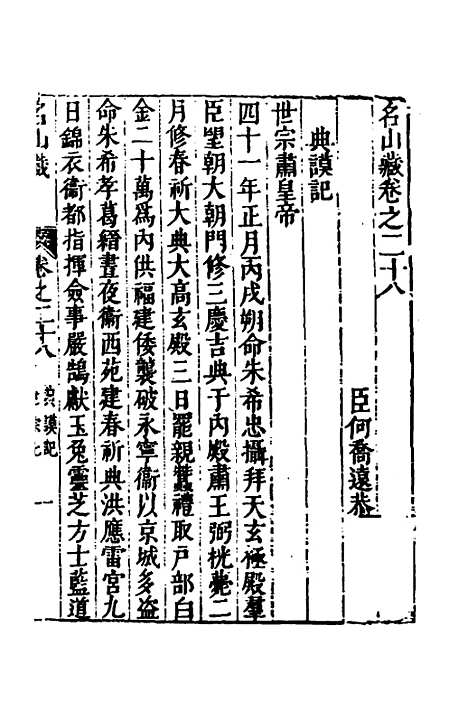 名山藏卷之二十八
臣何喬遠恭
典謨記
世宗肅皇帝
四十一年正月丙戌朔命朱希忠攝拜天玄極殿羣
臣望朝大朝門修三慶吉典于內殿肅王弼桄薨二
月修春祈大典大高玄殿三日罷親蠶禮取戶部白
金二十萬爲內供福建倭襲破永寧衞以京城多盜
命朱希孝葛縉晝夜衞西苑建春祈典洪應雷宮九
日錦衣衞都指揮僉事嚴鵠獻玉兔靈芝方士藍道
名山藏
卷之二十八
典謨記
一